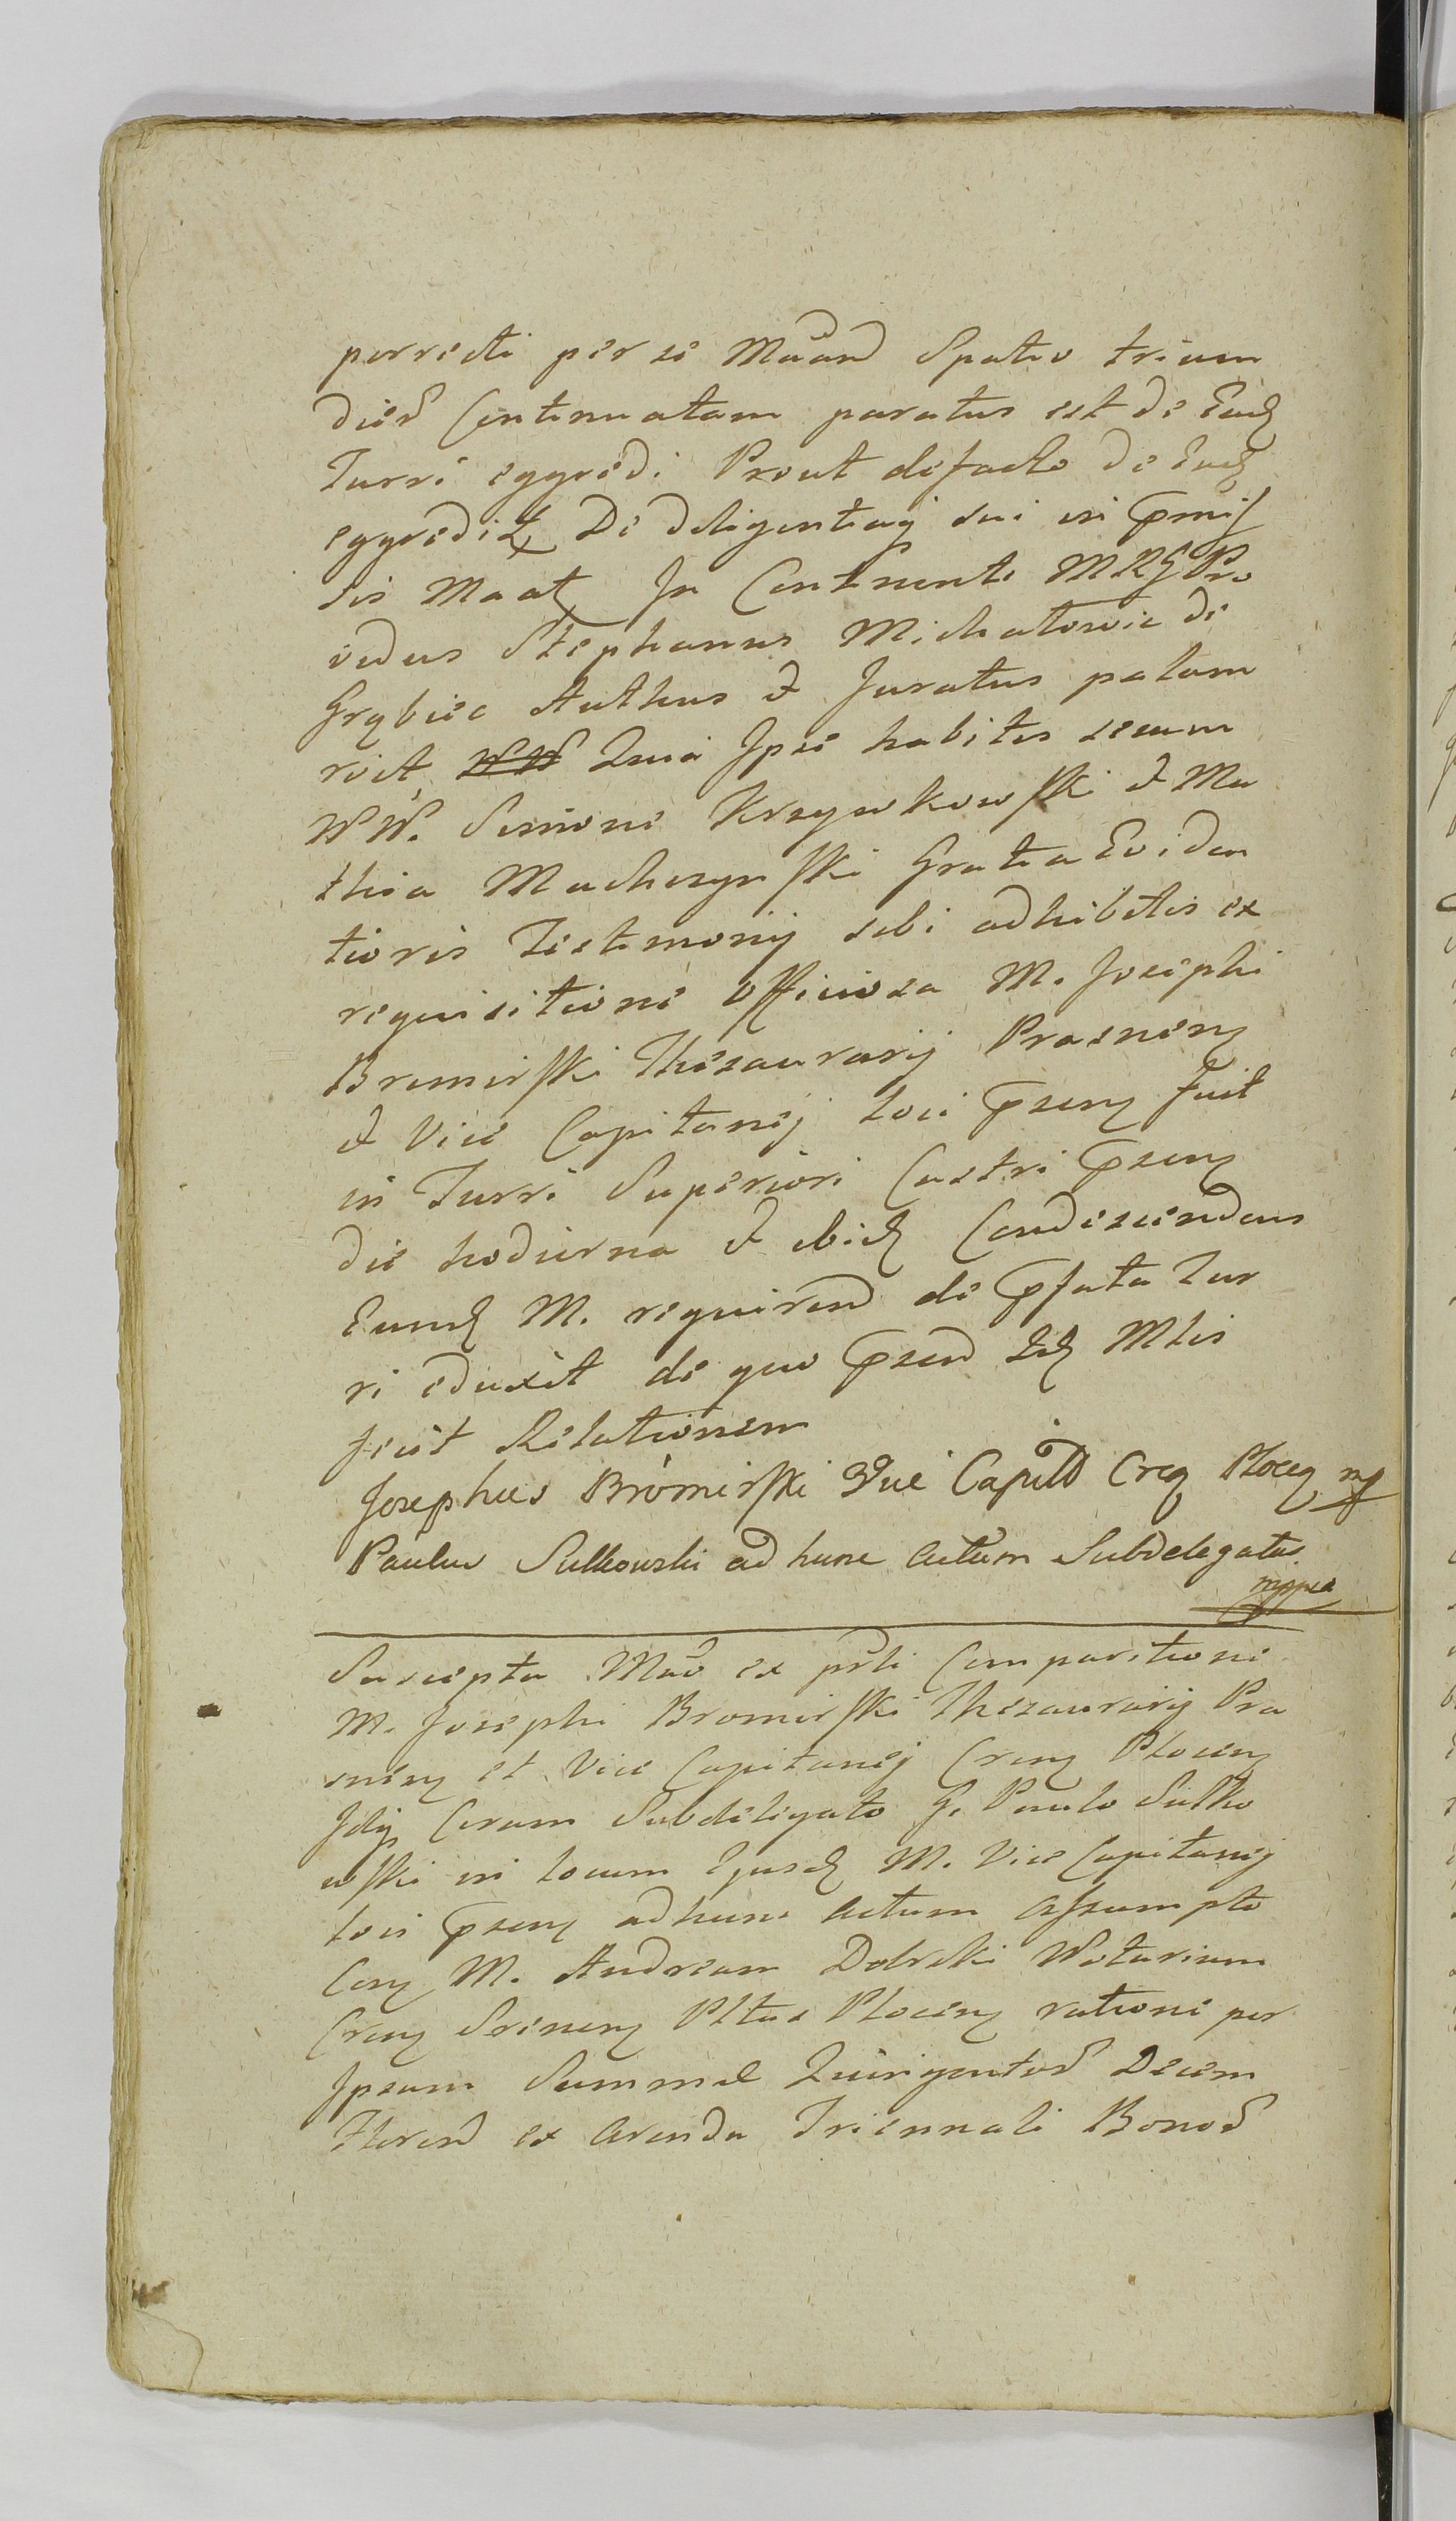 porrecti per se Mãnd Spatio trium
dieꝝ Continuatam paratus est de Ead
Turri eggredi Prout defacto de Ead
eggredit De diligentiaq sui in pmiſ
sis Maat In Continenti MRG Pro
vidus Stephanus Michałowic de
Grąbiec Authus et Juratus palam
rvit Quia Ipse habitis secum
WW. Simone Krzywkowſki et Ma
thia Machczynſki Gratia Eviden
tioris Testimonij sibi adhibitis ex
requisitione Officiosa M. Josephi
Bromirſki Thesaurarij Prasnen
et Vice Capitanej Loci psen fuit
in Turri Superiori Castri psen
die hodierna et ibid Condescendens
Eund M. requirend de pfata Tur
ri eduxit de quo psend Mtis
fecit Relationem
Josephus Bromirſki Vice Capits Crēg Płoceg mp
Paulus Sulkowski ad hunc actum Subdelegatus
mppa
Suscepta Mão ex psli Comparitione
M. Josephi Bromirſki Thesaurarij Pra
snen et Vice Capitanej Cren Płocen
Idq Coram Subdelegato G. Paulo Sułko
wſki in locum Ejusd M. Vice Capitanej
loci psen ad hunc actum aſsumpto
Con M. Andream Dobrski Notarium
Cren Srinen Płtus Płocen ratione per
Ipsum Summæ Quingentoꝝ Decem
Floren ex Arenda Triennali Bonoꝝ